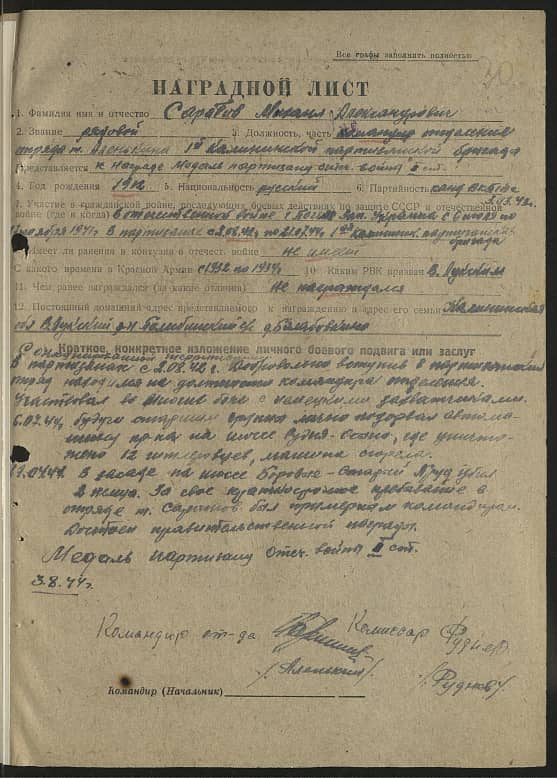 Все графы заполнить полностью
НАГРАДНОЙ ЛИСТ
1. Фамилия имя и отчество Михаил Александрович
2. Звание рядовой 3. Должность, часть командир отделения
отряда т. 1й Калининской партизанской бригады
Представляется к награде Медаль партизану отеч. войны II ст.
4. Год рождения 1912 5. Национальность русский 6. Партийность канд ВКП(б)
7. Участие в гражданской войне, последующих боевых действиях по защите СССР и отечественной
войне (где и когда) В отечественной войне
1941г. В партизанах с 2.08.42г. по 21.07.44г. 1я Калинин. партизанская
бригада
Имеет ли ранения и контузии в отечест. войне Не имеет
С какого времени в Красной Армии с 1932 по 1934г. 10. Каким РВК призван В. Лукским
11. Чем ранее награждался (за какие отличия) Не награждался
12. Постоянный домашний адрес представляемого к награждению и адрес его семьи Калининская
обл В. Лукский р-н
Краткое, конкретное изложение личного боевого подвига или заслуг
В партизанах с 2.08.42г. Добровольно вступив в партизанский
отряд находился на должности командира отделения.
Участвовал во многих боях с немецкими захватчиками.
6.03.44, будучи старшим группы лично подорвал автома-
шину пр-ка на шоссе где уничто-
жено 12 гитлеровцев, машина сгорела.
В засаде на шоссе Боровка - Старый убил
2 немца. За свое кратковременное пребывание в
отряде т. был примерным командиром.
Достоин правительственной награды.
Медаль партизану Отеч. войны II ст.
3.8.44г.
Командир от-да Комиссар
Командир (Начальник)